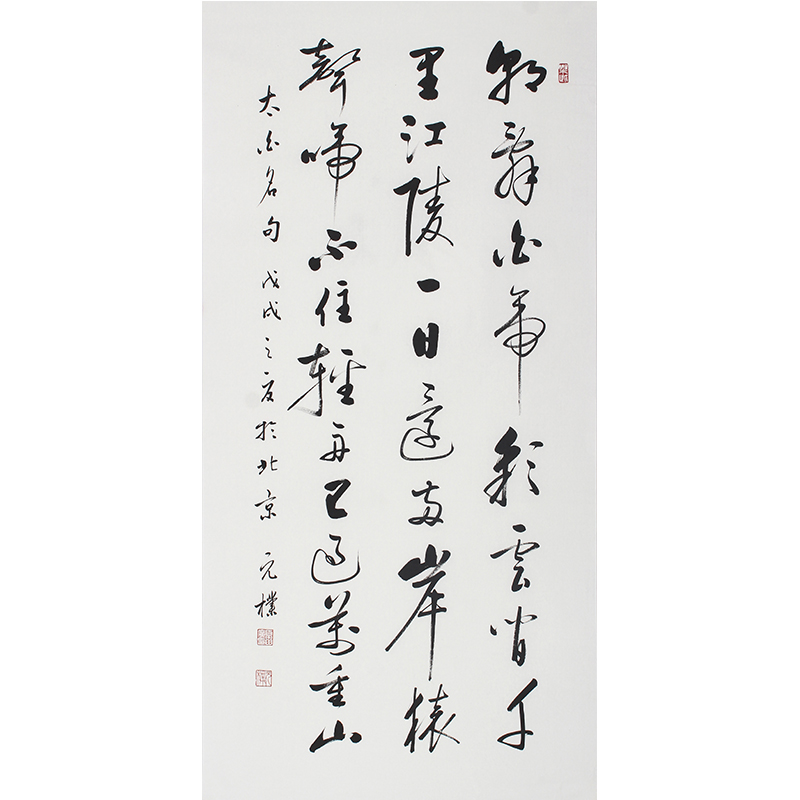 朝辭白帝彩雲間千
里江陵一日還兩岸猿
聲啼不住輕舟已過萬重山
太白名句 戊戌之夏於北京 元樸